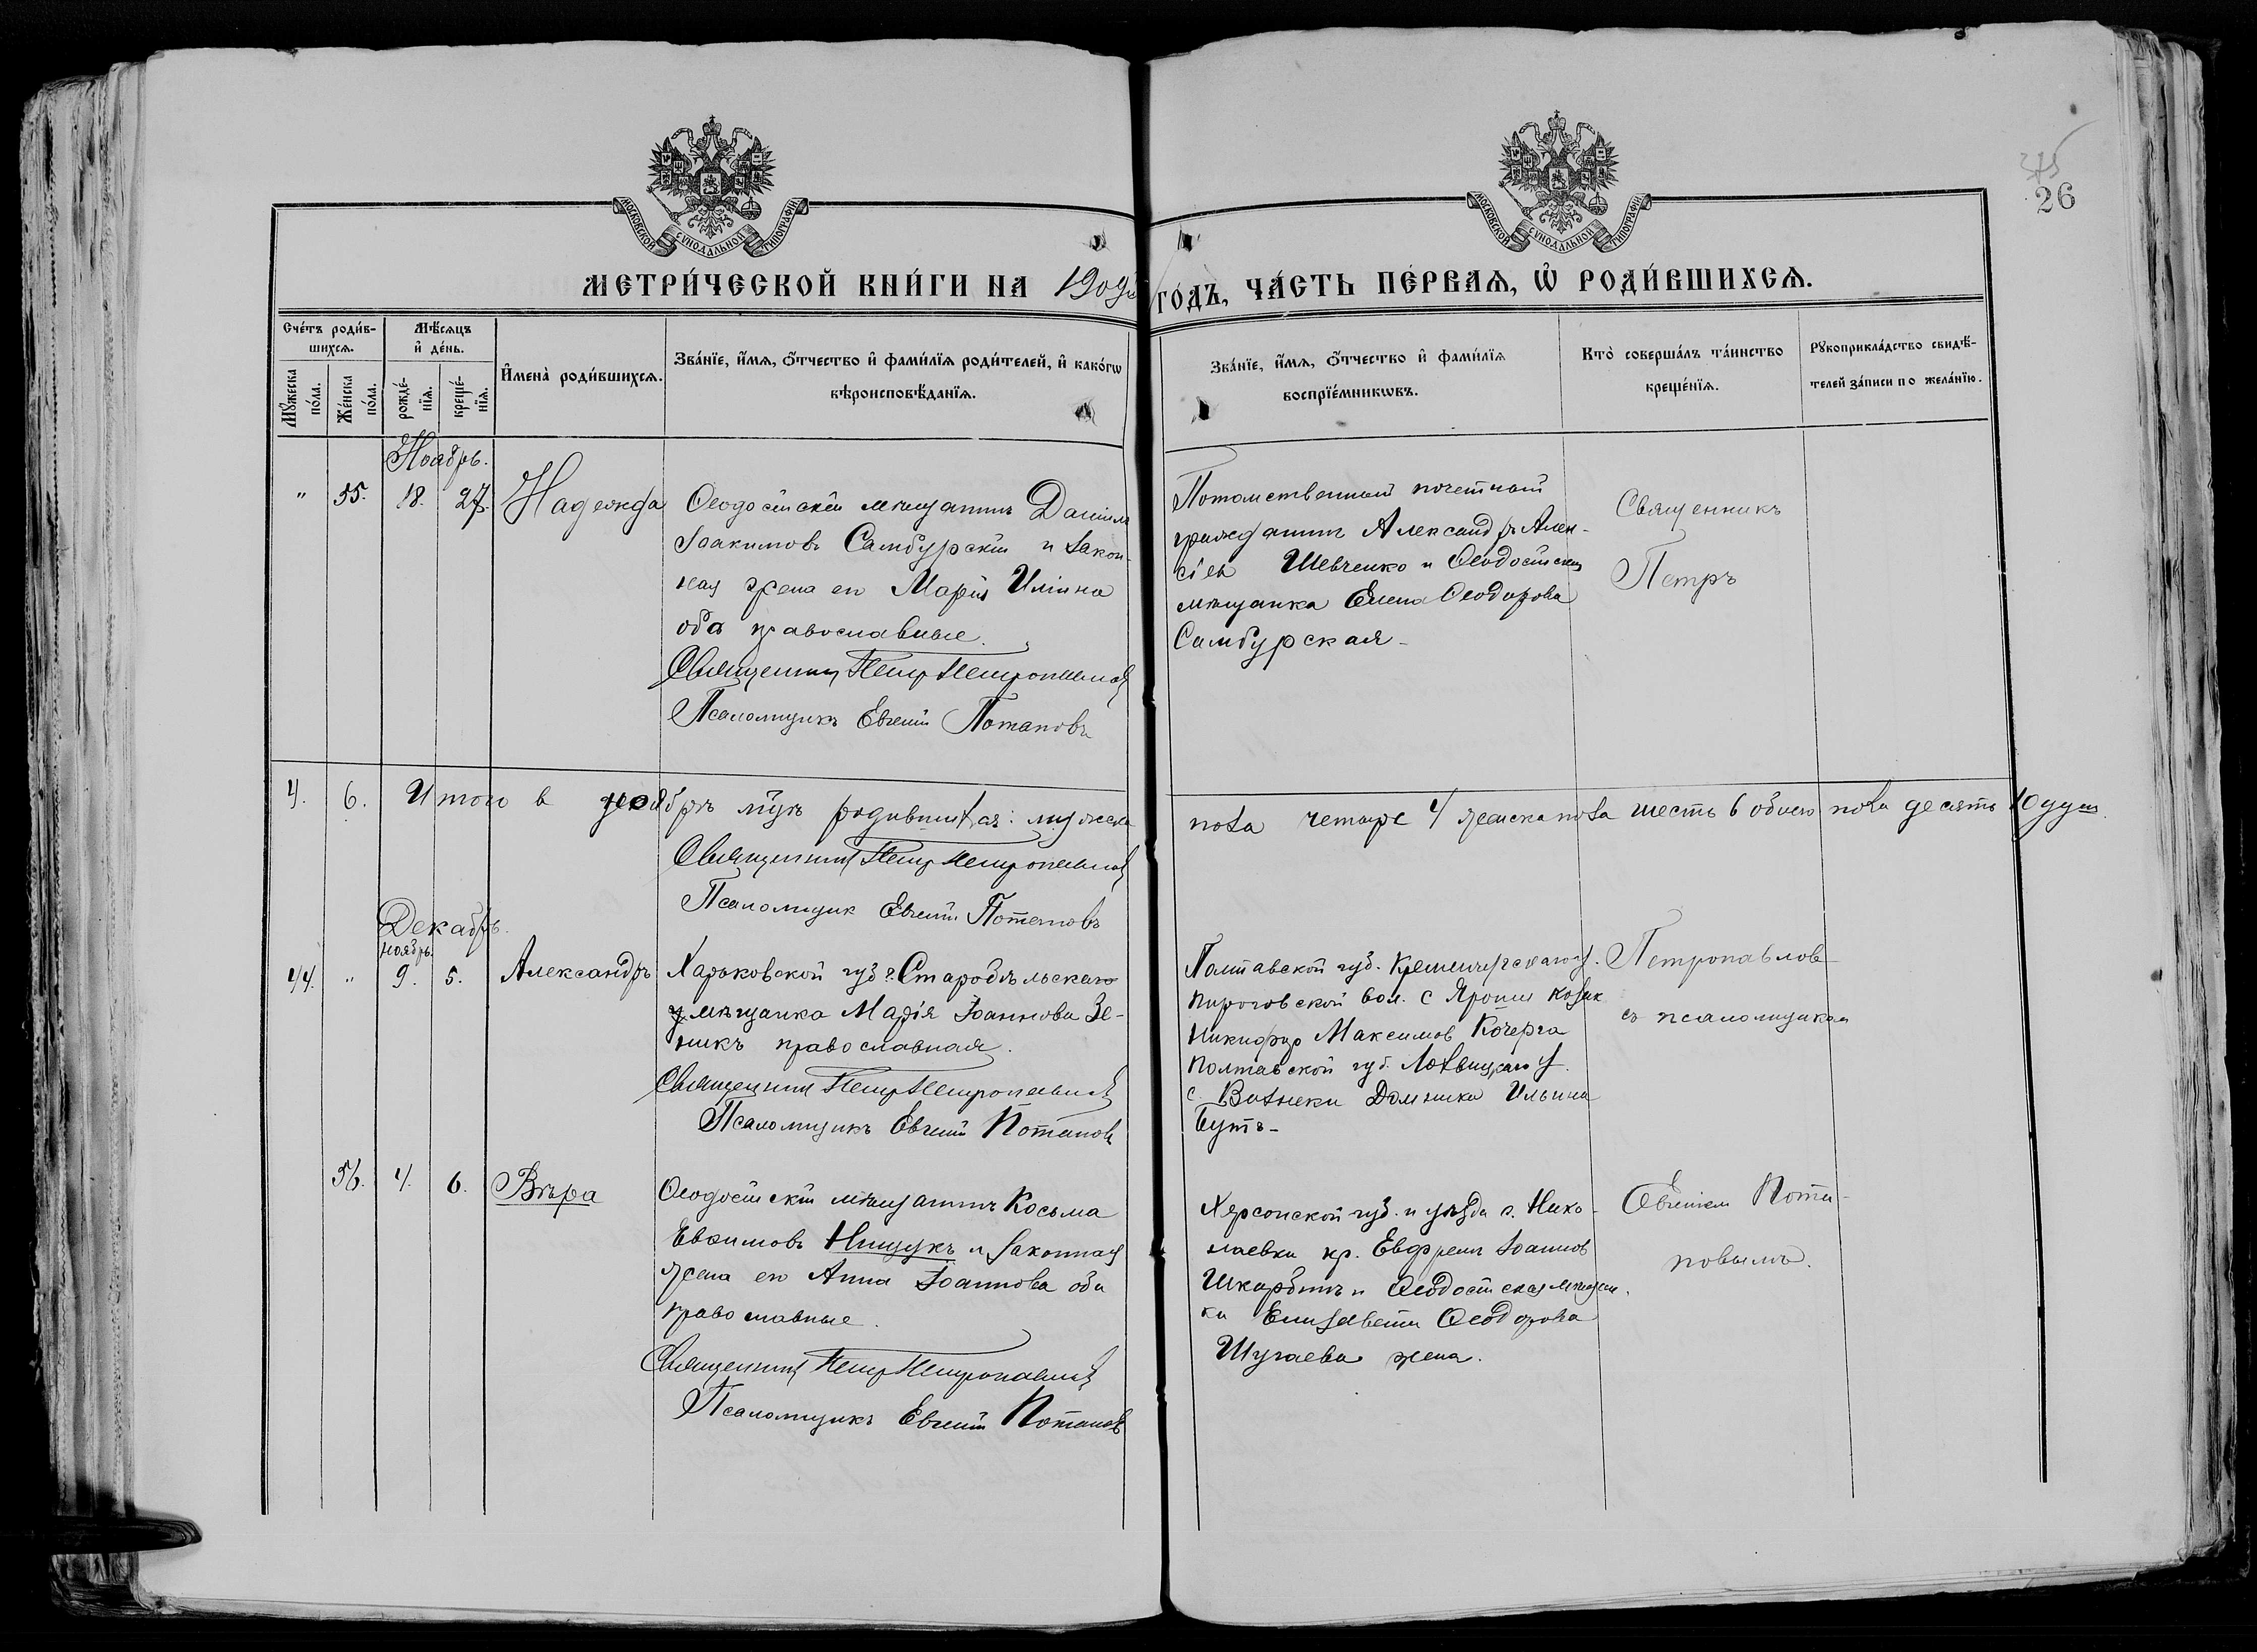 275
26
МОСКОВСКОЙ СѴНОДАЛЬНОЙ ТИПОГРАФІИ
МОСКОВСКОЙ СѴНОДАЛЬНОЙ ТИПОГРАФІИ
МЕТРИ́ЧЕСКОЙ КНИ́ГИ НА 1909й ГО́ДЪ, ЧА́СТЬ ПЕ́РВАѦ, Ѡ҆ РОДИ́ВШИХСѦ.
Сче́тъ роди́в-
шихсѧ.
Мꙋ́жеска по́ла.
Же́нска по́ла.
Мѣ́сѧцъ
и҆ де́нь.
рожде́-нїѧ.
креще́-нїѧ.
И҆мена̀ роди́вшихсѧ.
Зва́нїе, и҆́мѧ, ѻ҆́тчество и҆ фами́лїѧ роди́телей, и҆ како́гѡ
вѣроисповѣ́данїѧ.
Зва́нїе, и҆́мѧ, ѻ҆́тчество и҆ фами́лїѧ
воспрїе́мникѡвъ.
Кто̀ соверша́лъ та́инство
креще́нїѧ.
Рꙋкоприкла́дство свидѣ́-
телей за́писи по жела́нїю.
Ноябрь.
" 55. 18. 27. Надежда
Ѳеодосійскій мѣщанинъ Даніилъ
Іоакимовъ Самбурскій и закон-
ная жена его Марія Иліина
оба православные.
Священникъ Петръ Петропавловъ
Псаломщикъ Евгеній Потаповъ
Потомственный почетный
гражданинъ Александръ Алек-
сіевъ Шевченко и Ѳеодосійская
мѣщанка Елена Ѳеодорова
Самбурская
Священникъ
Петръ
4. 6. Итого в ноябрѣ мцѣ родившихся: мужска
пола четыре 4 женска пола шесть 6 обоего пола десять 10 душ.
Священникъ Петръ Петропавловъ
Псаломщик Евгеній Потаповъ
Декабрь.
ноябрь.
44. " 9. 5. Александръ
Харьковской губ. г. Старобѣльска
мѣщанка Марія Іоаннова Зе-
никъ православная.
Священникъ Петръ Петропавловъ
Псаломщикъ Евгеній Потаповъ
Полтавской губ. Кременчугскаго у.
Пироговской вол. с Яроши козак
Никифоръ Максимов Кочерга
Полтавской губ. Лохвицкаго у.
с. Домника Ильина
Бутъ
Петропавлов
съ псаломщиком
56. 4. 6. Вѣра
Ѳеодосійскій мѣщанинъ Косьма
Евѳимовъ Нищукъ и законная
жена его Анна Іоаннова оба
православные.
Священникъ Петръ Петропавловъ
Псаломщикъ Евгеній Потаповъ
Херсонской губ. и уѣзда с. Нико-
лаевки кр. Евфремъ Іоаннов
и Ѳеодосійская мѣщан-
ка Елизавета Ѳеодорова
жена.
Евгеніем Пота-
повымъ.